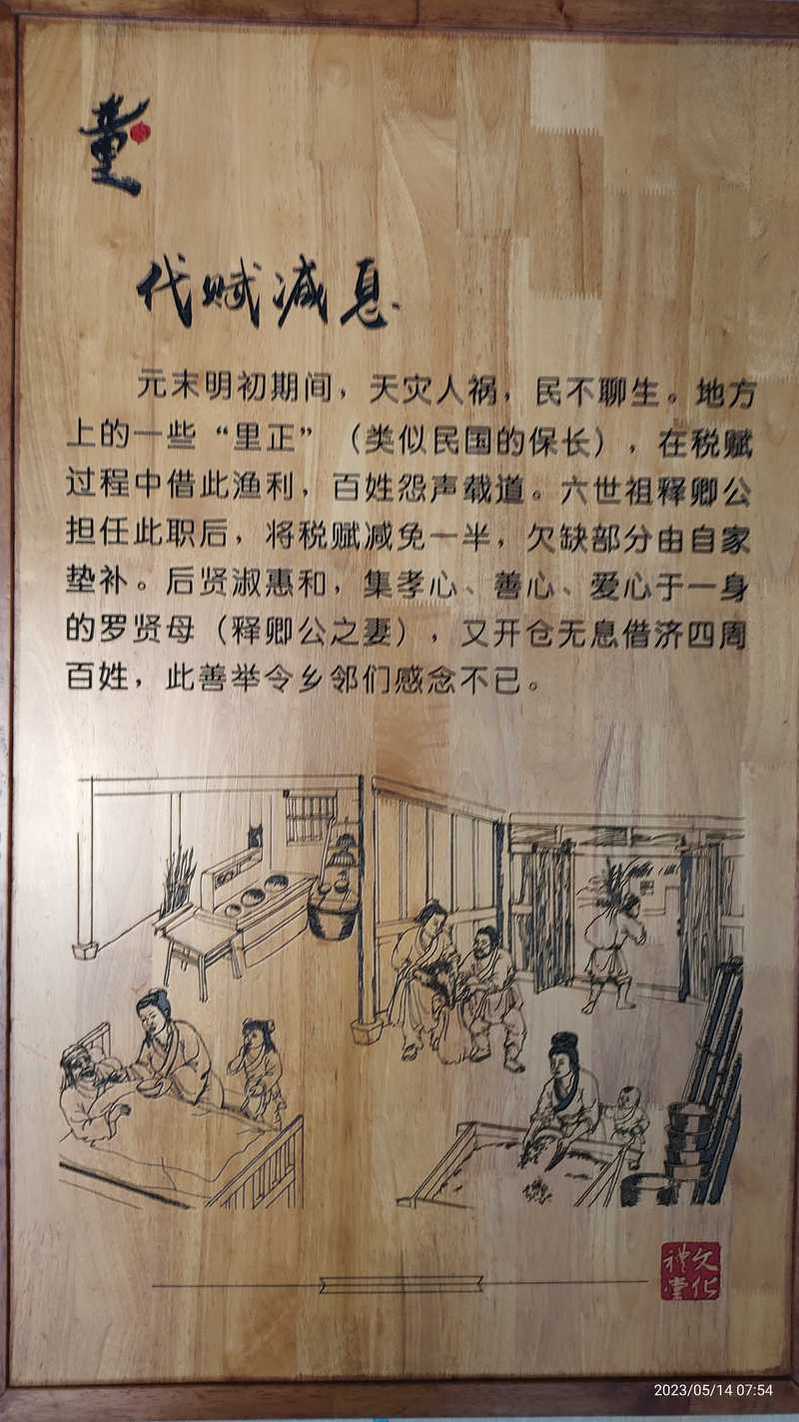 童
代赋减息
元末明初期间，天灾人祸，民不聊生。地方
上的一些“里正”（类似民国的保长），在税赋
过程中借此渔利，百姓怨声载道。六世祖释卿公
担任此职后，将税赋减免一半，欠缺部分由自家
垫补。后贤淑惠和，集孝心、善心、爱心于一身
的罗贤母（释卿公之妻），又开仓无息借济四周
百姓，此善举令乡邻们感念不已。
文化
禮堂
2023/05/14 07:54